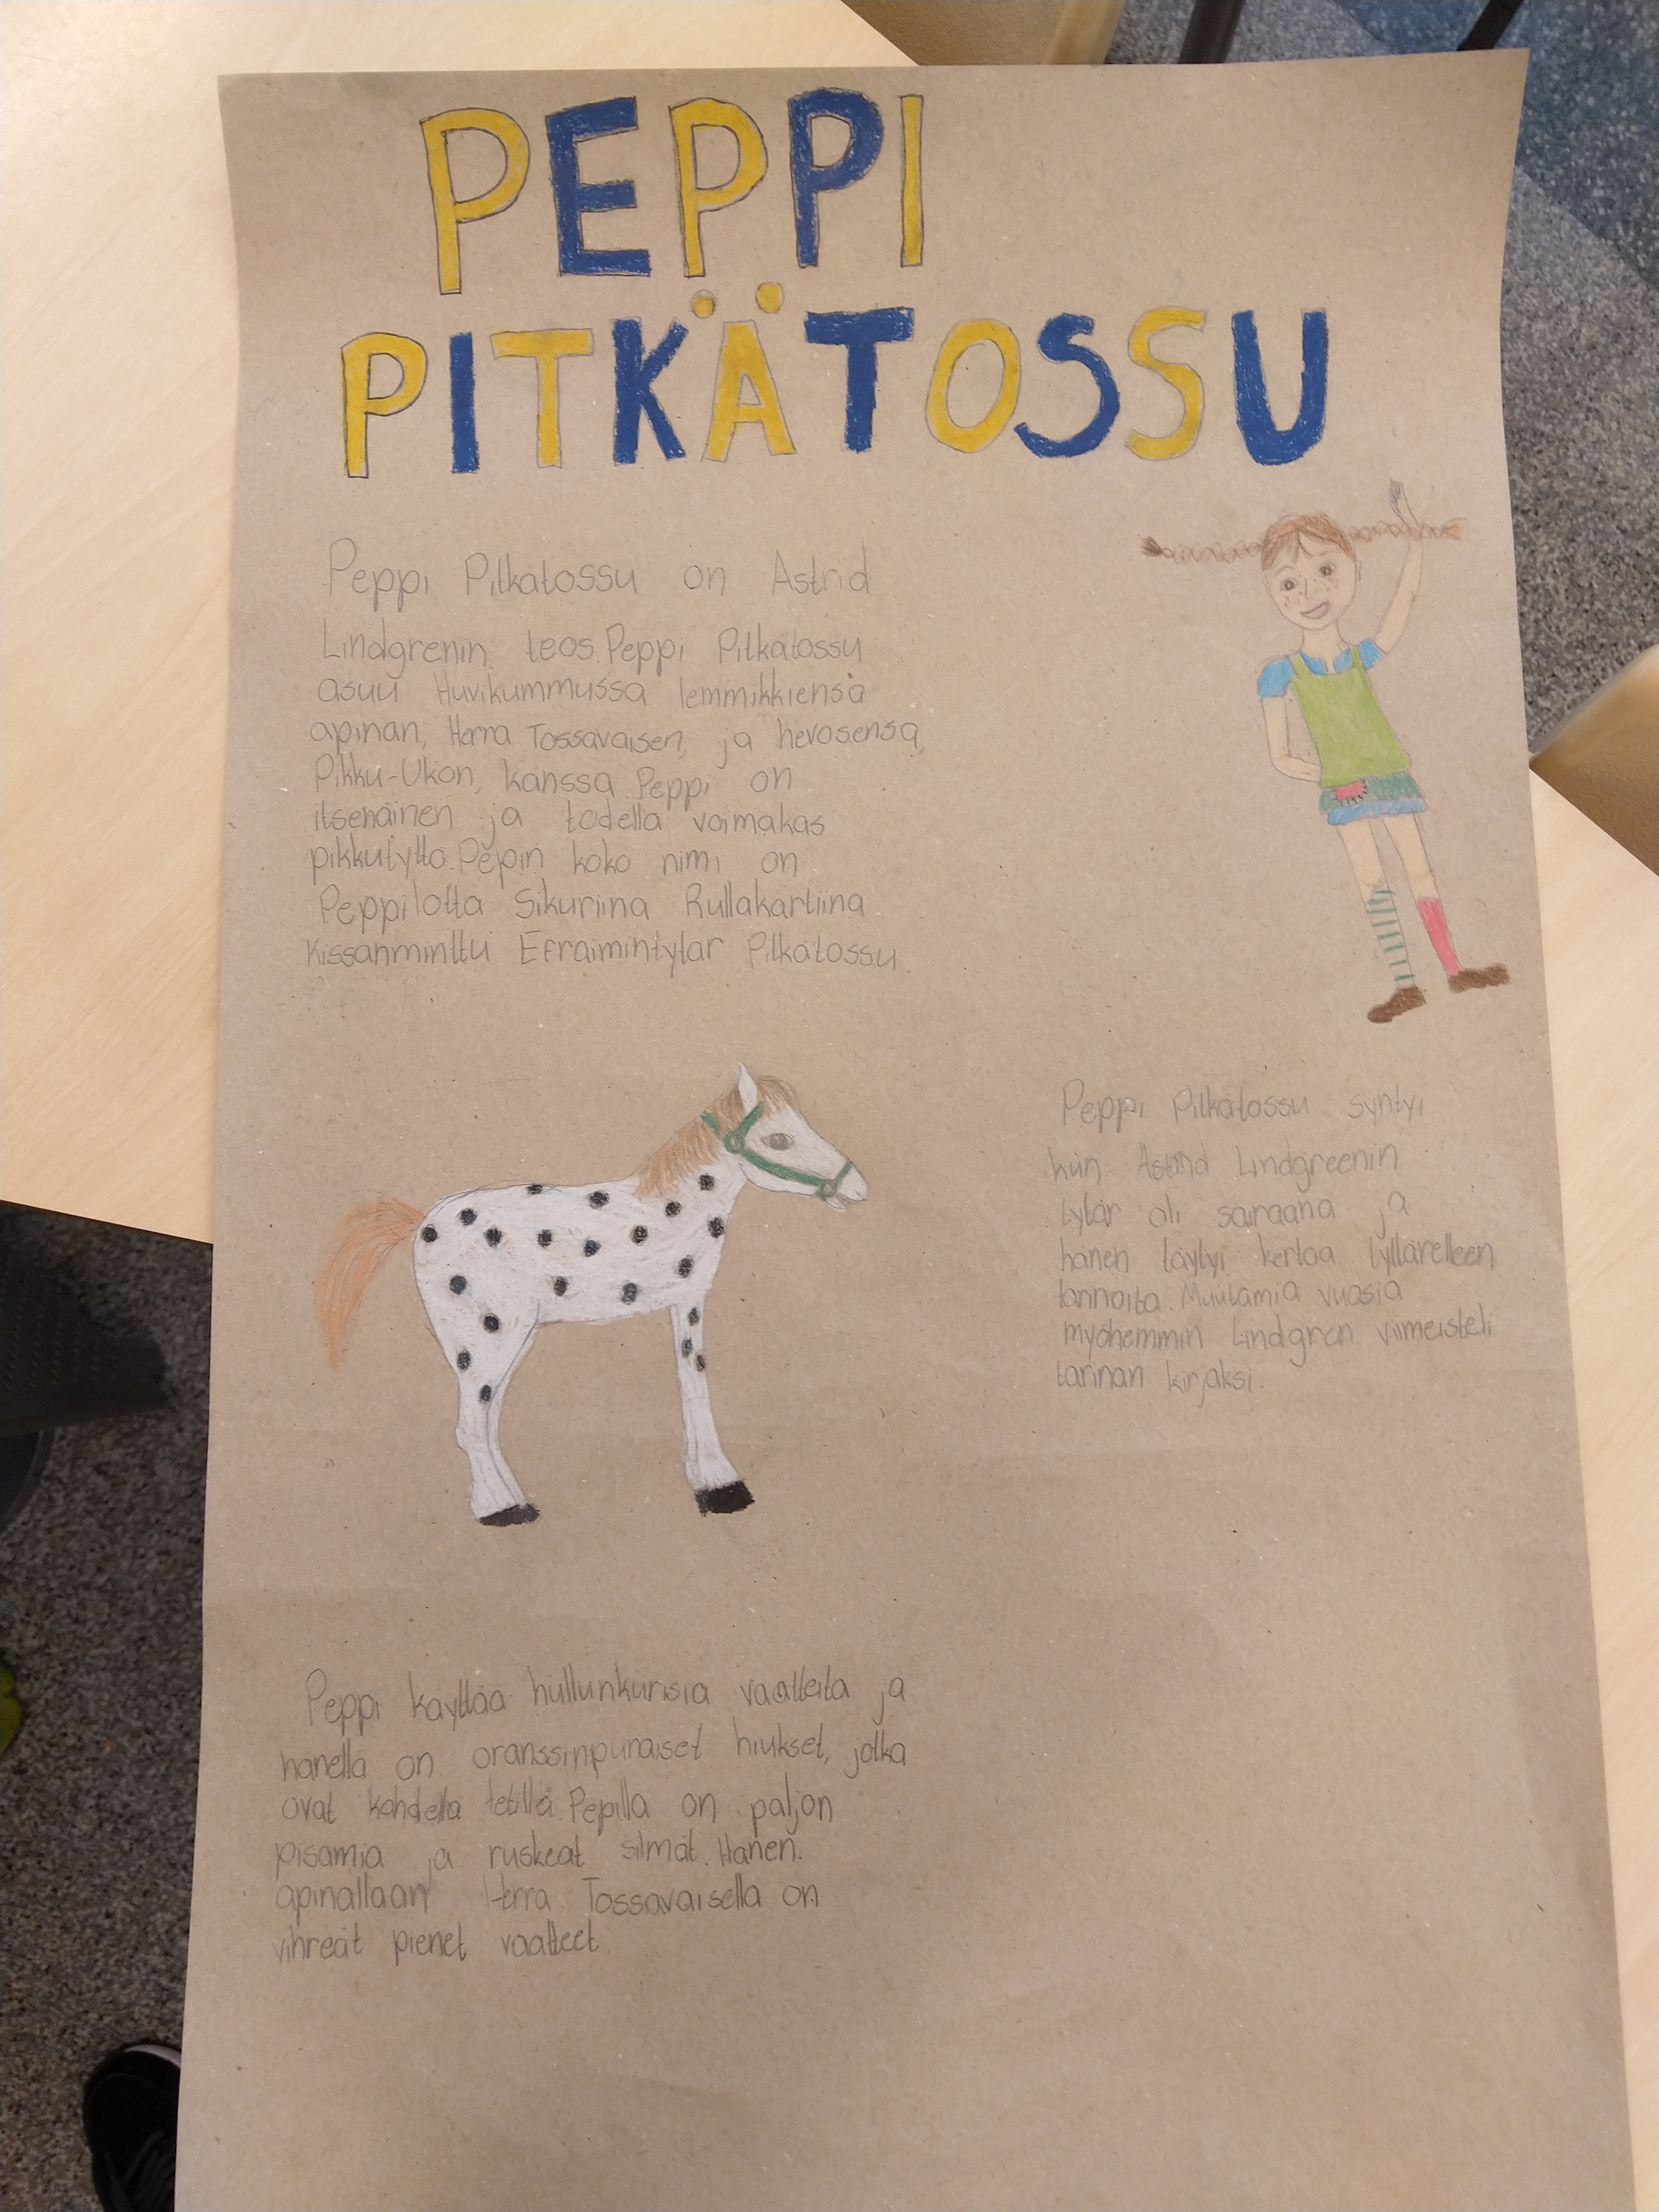 PEPPI
PITKÄTOSSU
Peppi Pitkätossu on Astrid
Lindgrenin teos. Peppi Pitkätossu
asuu Huvikummussa lemmikkiensä
apinan, Herra Tossavaisen, ja hevosensa,
Pikku-Ukon, kanssa. Peppi on
itsenäinen ja todella voimakas
pikkutyttö. Pepin koko nimi on
Peppilotta Sikuriina Rullakartiina
Kissanminttu Efraimintytär Pitkätossu.
Peppi Pitkätossu syntyi
kun Astrid Lindgreenin
tytär oli sairaana ja
hänen täytyi kertoa tyttärelleen
tarinoita. Muutamia vuosia
myöhemmin Lindgren viimeisteli
tarinan kirjaksi.
Peppi käyttää hullunkurisia vaatteita ja
hänellä on oranssinpunaiset hiukset, jotka
ovat kahdella letillä. Pepillä on paljon
pisamia ja ruskeat silmät. Hänen
apinallaan Herra Tossavaisella on
vihreät pienet vaatteet.